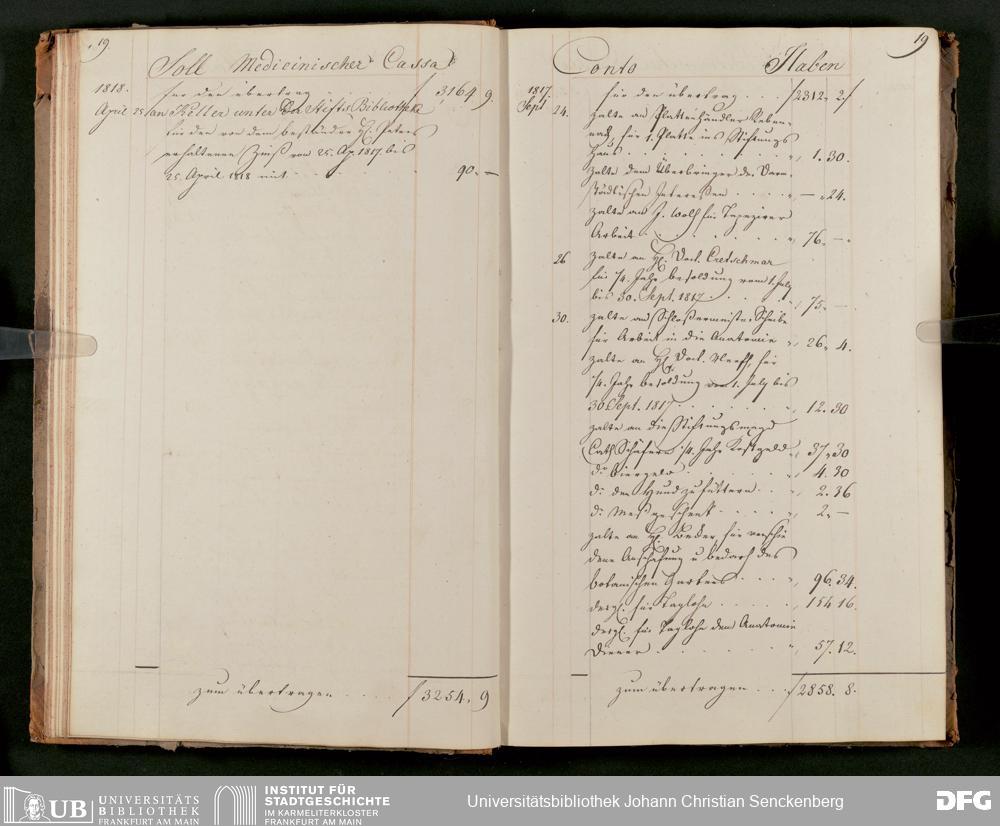 19.
Soll Medicinischer Cassa
1818. für den übertrag . . . f 3164 9.
April 25 an Keller unter der Stifts Bibliotheck
für den von dem beständer H. Peters
erhaltenen Zinß vom 25. Ap. 1817. bis
25 April 1818 mit . . . . 90. —
zum übertragen . . . . f 3254. 9
19
Conto Haben
1817. für den übertrag . . . f 2312. 2.
Sept. 24. zalte an Plattenhändler
für 1. Platte ins Stiftungs
Haus . . . . . . . „ 1. 30.
zalte dem Überbringer der Darm-
städtischen Interessen . . . . „ — „ 24.
zalte an J. Wolf für Tapezirer
Arbeit . . . . . . „ 76. —.
26 zalte an H. Doct. Cretschmar
für 1/4. Jahr besoldung vom 1. July
bis 30. Sept. 1817. . . . . „ 75. —
30. zalte an Schlossermeister Scheibe
für Arbeit in die Anatomie „ 26. 4.
zalte an H. Doct. Neeff, für
1/4. Jahr besoldung vom 1. July bis
30 Sept. 1817. . . . . . „ 12. 30
zalte an die Stiftungsmagd
Cath. Schäfer 1/4. Jahr Kostgeld „ 37. 30
do. Biergeld . . . . . . „ 4. 30
do. den Hund zu füttern . . „ 2. 36
do. Meßgeschenk . . . . „ 2. —
zalte an H. Becker, für verschie
dene Anschafung u bedarf des
botanischen Gartens . . . . „ 96. 34.
desgl. für Taglohn . . . . „ 154 16.
desgl. für Taglohn dem Anatomie
Diener . . . . . . . „ 57. 12.
zum übertragen . . . f 2858. 8.
UB UNIVERSITÄTS
BIBLIOTHEK
FRANKFURT AM MAIN
INSTITUT FÜR
STADTGESCHICHTE
IM KARMELITERKLOSTER
FRANKFURT AM MAIN
Universitätsbibliothek Johann Christian Senckenberg
DFG